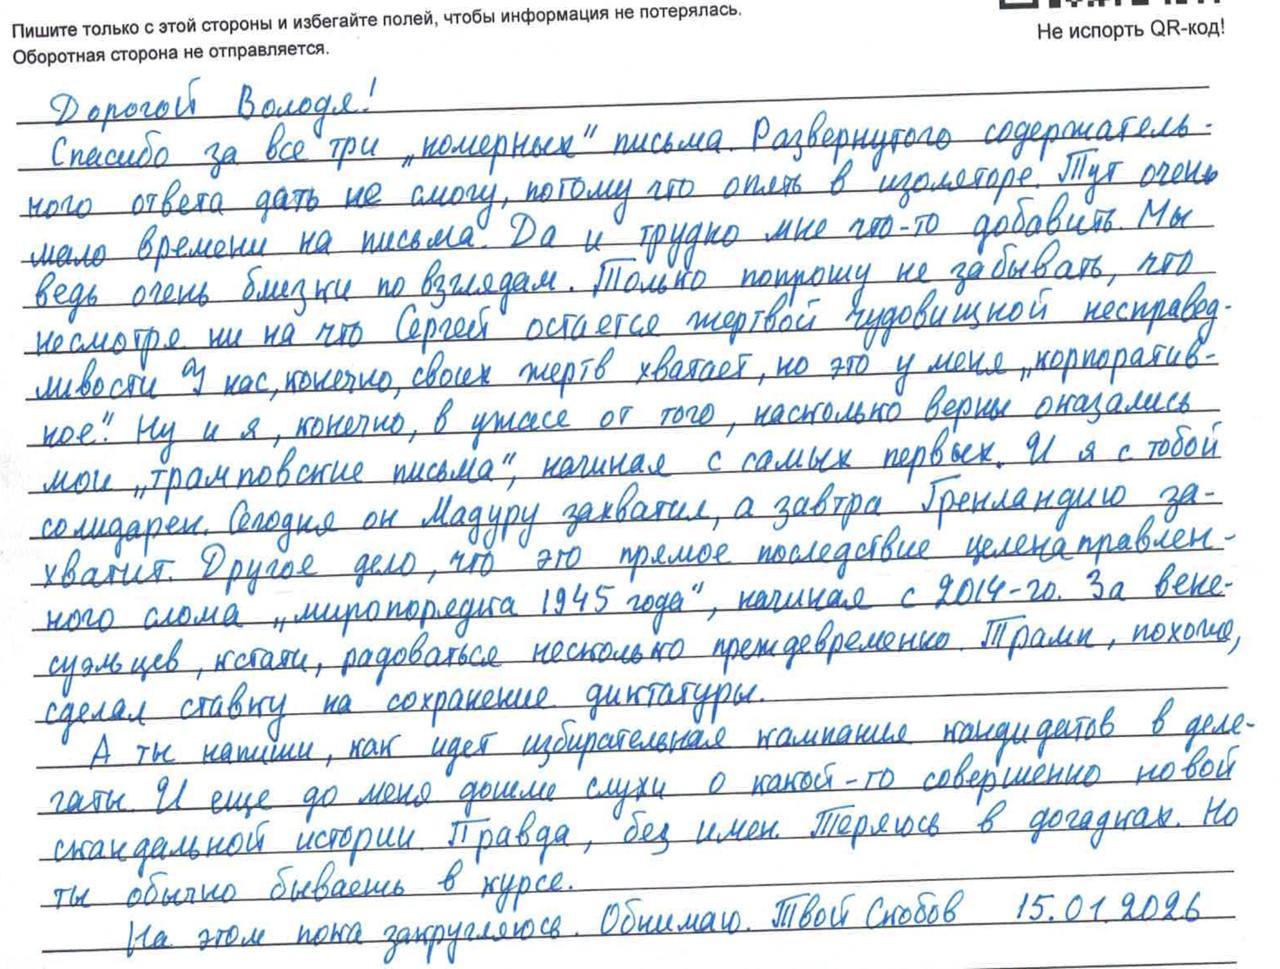 Пишите только с этой стороны и избегайте полей, чтобы информация не потерялась.
Оборотная сторона не отправляется.
Не испорть QR-код!
Дорогой Володя!
Спасибо за все три „номерных" письма. Развернутого содержатель-
ного ответа дать не смогу, потому что опять в изоляторе. Тут очень
мало времени на письма. Да и трудно мне что-то добавить. Мы
ведь очень близки по взглядам. Только попрошу не забывать, что
несмотря ни на что Сергей остается жертвой чудовищной несправед-
ливости. У нас, конечно, своих жертв хватает, но это у меня „корпоратив-
ное". Ну и я, конечно, в ужасе от того, насколько верны оказались
мои „трамповские письма", начиная с самых первых. И я с тобой
солидарен. Сегодня он Мадуру захватил, а завтра Гренландию за-
хватит. Другое дело, что это прямое последствие целенаправлен-
ного слома „миропорядка 1945 года", начиная с 2014-го. За вене-
суэльцев, кстати, радоваться несколько преждевременно. Трамп, похоже,
сделал ставку на сохранение диктатуры.
А ты напиши, как идет избирательная кампания кандидатов в деле-
гаты. И еще до меня дошли слухи о какой-то совершенно новой
скандальной истории. Правда, без имен. Теряюсь в догадках. Но
ты обычно бываешь в курсе.
На этом пока закругляюсь. Обнимаю. Твой Скобов 15.01.2026